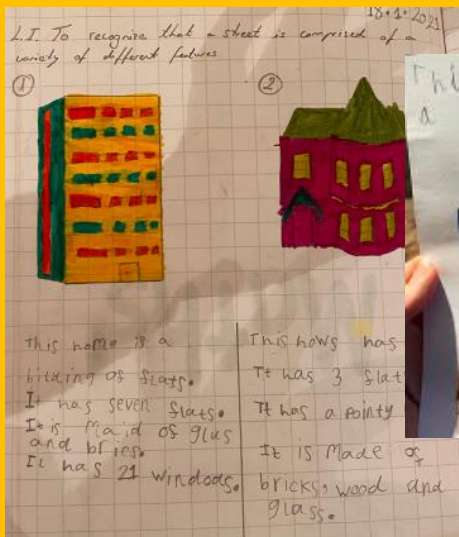 18.1.2021
L.I. To recognise that a street is comprised of a
variety of different features
1
2
Thi
a
This home is a
bilding of flats.
It has seven flats.
It is maid of glas
and brics.
It has 21 windods.
This hows has
It has 3 flat
It has a pointy
It is made of
bricks, wood and
glass.